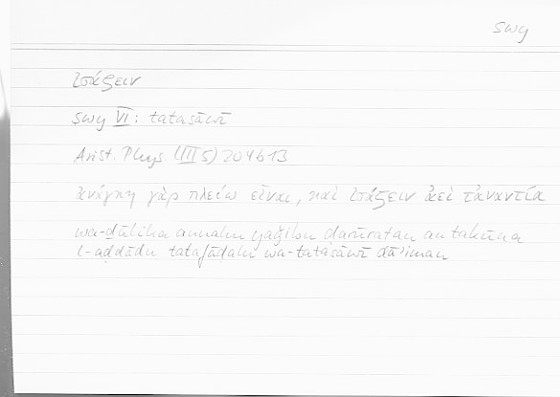 swy
ἰσάζειν
swy VI: tatasāwī
Arist. Phys. (III 5) 204b13
ἀνάγκη γὰρ πλείω εἶναι, καὶ ἰσάζειν ἀεὶ τἀναντία
wa-ḏālika annahu yaǧibu ḍarūratan an takūna
l-aḍdādu tatafāḍalu wa-tatasāwī dāʾiman